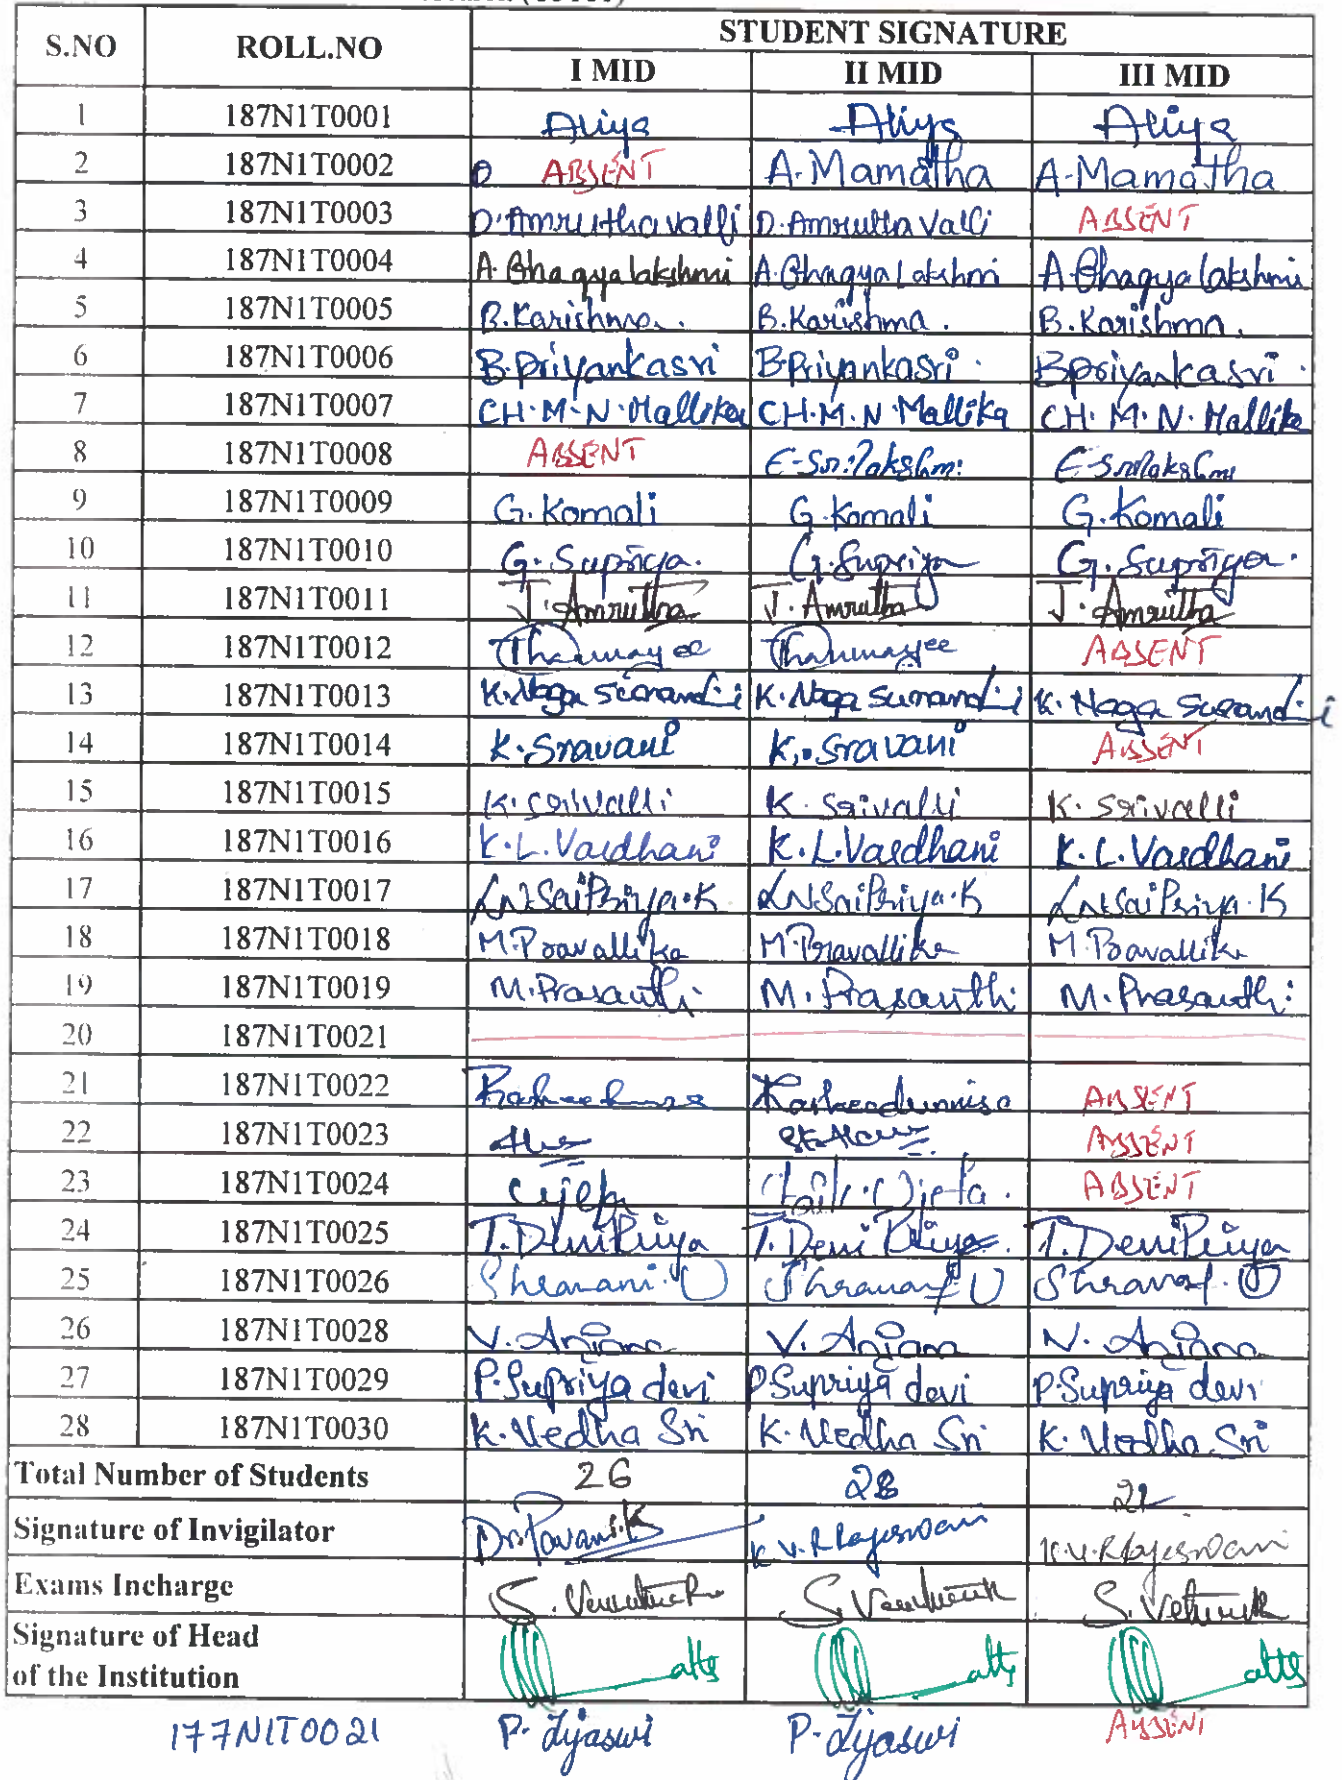 S.NO ROLL.NO STUDENT SIGNATURE
I MID II MID III MID
1 187N1T0001 Aliya Aliya Aliya
2 187N1T0002 ABSENT A.Mamatha A.Mamatha
3 187N1T0003 D.Amruthavalli D.Amrutha Valli ABSENT
4 187N1T0004 A.Bhagyalakshmi A.Bhagya Lakshmi A Bhagya lakshmi
5 187N1T0005 B.Karishma. B.Karishma. B.Karishma.
6 187N1T0006 B.Priyankasri B.Priyankasri. B.priyankasri.
7 187N1T0007 CH.M.N.Mallika CH.M.N.Mallika CH.M.N.Mallika
8 187N1T0008 ABSENT E-Sri.lakshmi E-Srilakshmi
9 187N1T0009 G.Komali G.Komali G.Komali
10 187N1T0010 G.Supriya. G.Supriya G.Supriya.
11 187N1T0011 J.Amrutha J.Amrutha J.Amrutha
12 187N1T0012 Thanmayee Thanmayee ABSENT
13 187N1T0013 K.Naga Sunandi K.Naga Sunandi K.Naga Sunandi
14 187N1T0014 K.Sravani K.Sravani ABSENT
15 187N1T0015 K.Srivalli K.Srivalli K.Srivalli
16 187N1T0016 K.L.Vardhani K.L.Vardhani K.L.Vardhani
17 187N1T0017 LNSaiPriya.K LNSaiPriya.K LNSaiPriya.K
18 187N1T0018 M.Pravallika M.Pravallika M.Pravallika
19 187N1T0019 M.Prasanthi M.Prasanthi M.Prasanthi
20 187N1T0021
21 187N1T0022 ABSENT
22 187N1T0023 ABSENT
23 187N1T0024 ABSENT
24 187N1T0025 T.DeviPriya T.Devi Priya T.DeviPriya
25 187N1T0026 Shravani.U Shravani U Shravani.U
26 187N1T0028 V.Anjana V.Anjana V.Anjana
27 187N1T0029 P.Supriya devi P.Supriya devi P.Supriya devi
28 187N1T0030 K.Vedha Sri K.Vedha Sri K.Vedha Sri
Total Number of Students 26 28 22
Signature of Invigilator K.V.R Rajeswari K.V.R Rajeswari
Exams Incharge
Signature of Head
of the Institution
177N1T0021 P.Tejaswi P.Tejaswi ABSENT